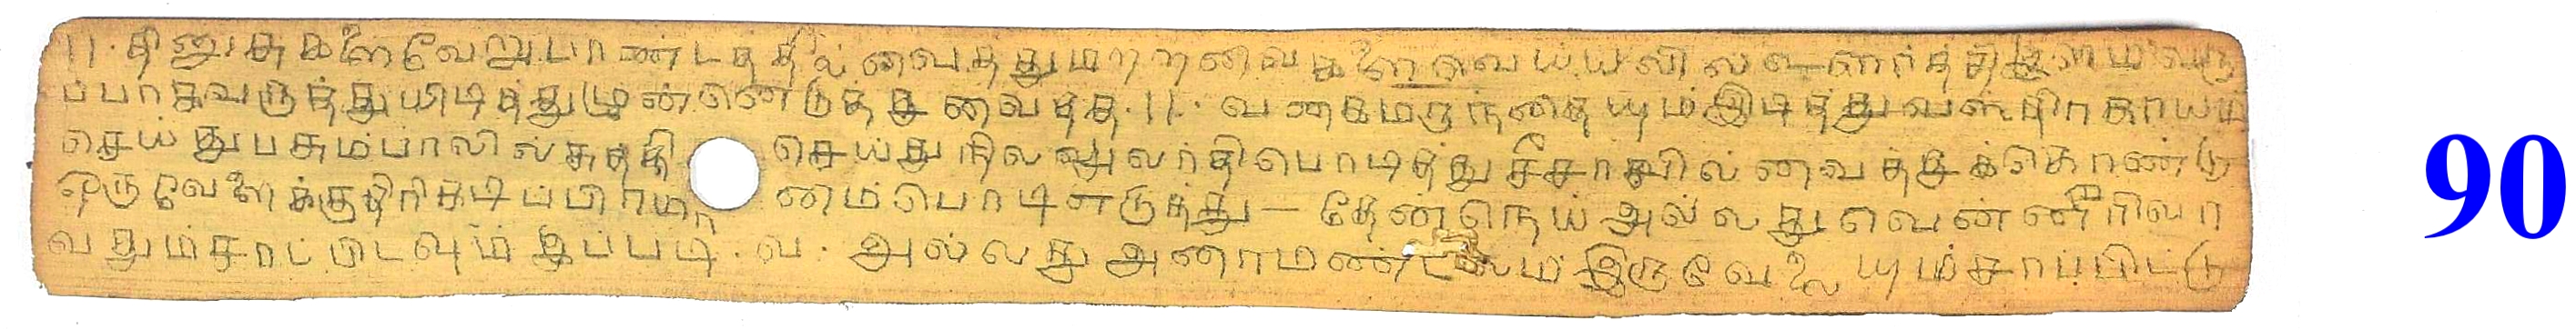 11. தினுசுகளை வேறு பாண்டத்தில் வைத்து மற்றவைகளை வெய்யலில் உளர்த்தி
ப்பாகவருத்து யிடித்து முன் னெடுத்து வைத்த 11. வகைமருந்தையும் இடித்து வஸ்திரகாயம்
செய்து பசும்பாலில் சுத்தி செய்து நிலலுலர்தி பொடித்து சீசாவில் வைத்துக்கொண்டு
ஒரு வேளைக்கு திரிகடிப்பிரமாணம் பொடி எடுத்து — தேன் நெய் அல்லது வெண்ணீரிலா
வதும் சாட்பிடவும் இப்படி. வ. அல்லது அரைமண்டலம் இருவேலையும் சாப்பிட்டு
90